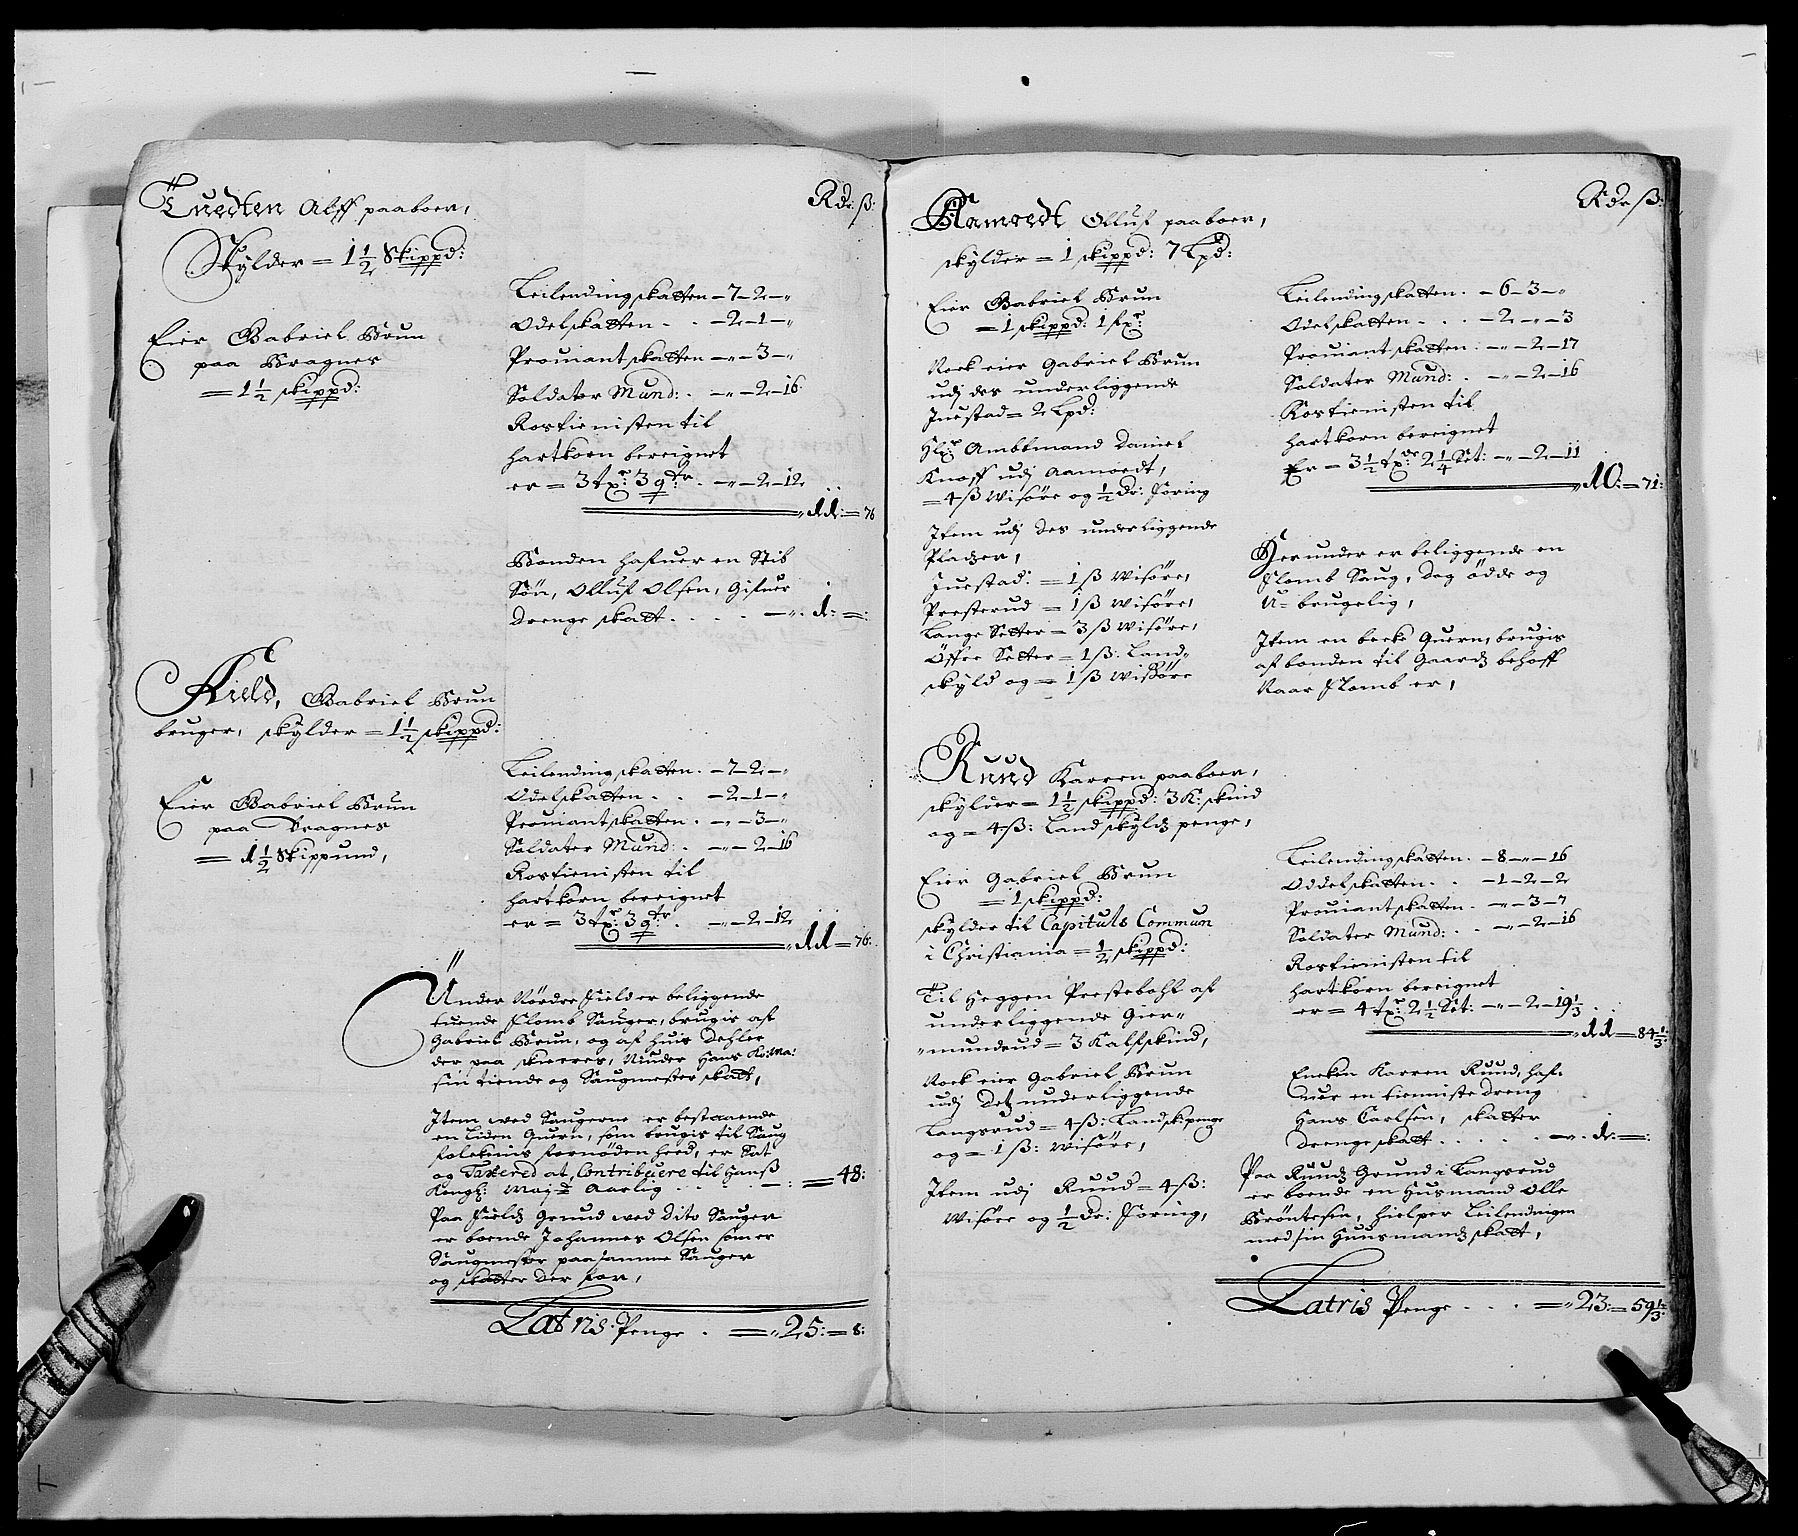 Tuedten Alff paaboer,
Rdr: ß:
Skylder = 1½ Skippd:
Leilendingskatten – 7 – 2 – „
Odelskatten . . – 2 – 1 – „
Eier Gabriel Brun
paa Bragnes
= 1½ skippd:
Prouiantskatten – „ – 3 – „
Soldater Mund: . – „ – 2 – 16
Rostienisten til
hartkorn bereignet
er = 3 tr: 3 qtr . – „ – 2 – 12
11: = 76
Bonden hafuer en Stib
Søn, Olluf Olsen, Gifuer
drenge skatt . . . . – „ . 1: =:
Field, Gabriel Brun
bruger, skylder = 1½ skippd:
Leilendingskatten . – 7 – 2 – „
Odelskatten . . – 2 – 1 – „
Eier Gabriel Brun
paa Bragnes
= 1½ Skippund,
Prouiantskatten . – „ – 3 – „
Soldater Mund: . – „ – 2 – 16
Rostienisten til
hartkorn bereignet
er = 3 tr: 3 qtr . – „ – 2 – 12
11 = 76:
Under Nørdre Field er beliggende
tuende flomb Sauger, brugis aff
Gabriel Brun, og af huis dehler
der paa skieeres, Niuder Hans Ko: Ma:
sin tiende og Saugmester skatt,
Item wed Saugerne er bestaaende
en liden Quern, som brugis til Saug
folckenis fornøden heed, er Sat
og Taxered at Contribuere til Hanß
Kongl: Maj:tz Aarlig . . . . – : = 48:
Paa Fieldz Grund wed dito Sauger
er boende Johannes Olsen som er
Saugmester paa samme Sauger
og skatter der for,
Latris Penge . = „ 25: = 8:
Aamoedt Olluf paaboer,
Rdr ß:
skylder = 1 skippd: 7 Lpd:
Eier Gabriel Brun
= 1 skippd: 1 fxr:
Nock eier Gabriel Brun
udj des underliggende
Juestad = 2 Lpd:
Hr: Ambtmand Daniel
Knoff udj Aamoedt,
= 4 ß Wisøre og ½ dr: foring
Item udj des underliggende
Pladzer,
Juestad: = 1 ß Wisøre,
Presterud = 1 ß Wisøre,
Lange Setter = 3 ß Wisøre,
Øffre Setter = 1 ß: Land„
skyld og = 1 ß Wissøre
Leilendingskatten . – 6 – 3 – „
Odelskatten . . . – 2 – „ – 3
Prouiantskatten . – „ – 2 – 17
Soldater Mund: . – „ – 2 – 16
Rostienisten til
hartkorn bereignet
Er = 3½ tr: 2¼ Set: – „ – 2 – 11
10: = 71:
Herunder er beliggende en
flomb Saug, dog ødde og
U= brugelig,
Item en becke Quern, brugis
af bonden til Gaardz behoff
Naar flomb er,
Ruud Karren paaboer,
skylder = 1½ skippd: 3 K: skind
og = 4 ß: Landskyldz penge,
Eier Gabriel Brun
= 1 skippd:
skylder til Capituls Commun
i Christiania = ½ skippd:
Til Heggen Prestebohl af
underliggende Gier=
„mundrud = 3 Kalfskind,
Nock eier Gabriel Brun
udj det underliggende
Langerud = 4 ß: Landsk: penge
og = 1 ß: Wisøre,
Item udj Ruud = 4 ß:
Wisøre og ½ dr: foring,
Leilendingskatten . – 8 – „ – 16
Oddelskatten . . – 1 – 2 – 2
Prouiantskatten . – „ – 3 – 7
Soldater Mund: . . – „ – 2 – 16
Rostienisten til
hartkorn bereignet
er = 4 tr: 2½ Set: – „ – 2 – 19⅓
11 = 84⅓:
Encken Karren Ruud, haf„
„uer en tienniste dreng
Hans Carlsen, skatter
drenge skatt . . . . . – „ . 1: =:
Paa Ruudz Grund i Langerud
er boende en Husmand Olle
Brøntesen, hielper Leilendingen
med sin Huusmandz skatt,
Latris Penge . . . = „ 23: = 59⅓: